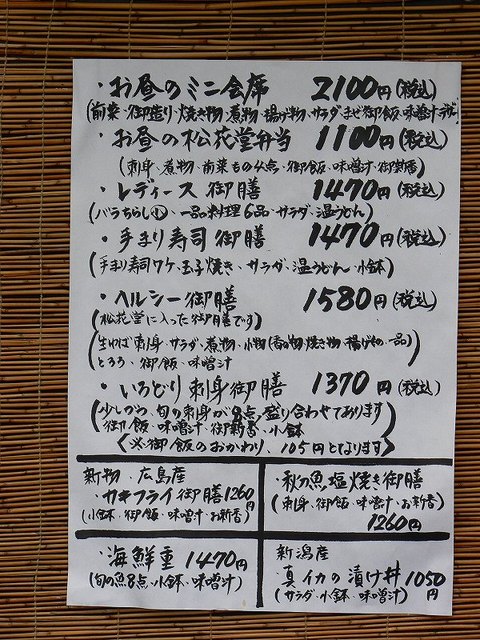 ・お昼のミニ会席 2100円(税込)
(前菜・御造り・焼き物・煮物・揚げ物・サラダ・まぜ御飯・味噌汁・デザ)
・お昼の松花堂弁当 1100円(税込)
(刺身・煮物・前菜もの4点・御飯・味噌汁・御新香)
・レディース御膳 1470円(税込)
(バラちらし①、一品料理6品・サラダ・温うどん)
・手まり寿司御膳 1470円(税込)
(手まり寿司7ケ・玉子焼き、サラダ・温うどん・小鉢)
・ヘルシー御膳 1580円(税込)
(松花堂に入った御膳です)
(生ゆば・刺身・サラダ・煮物・小物(香の物・焼き物・揚げもの・一品)
とろろ・御飯・味噌汁)
・いろどり刺身御膳 1370円(税込)
(少しづつ、旬の刺身が8点盛り合わせてあります
御飯・味噌汁・御新香・小鉢)
〈※御飯のおかわり、105円となります〉
新物・広島産
・カキフライ御膳1260円
(小鉢・御飯・味噌汁・お新香)
・秋刀魚塩焼き御膳
(刺身・御飯・味噌汁・お新香)
1260円
・海鮮重 1470円
(旬の魚8点・小鉢・味噌汁)
新潟産
・真イカの漬け丼 1050円
(サラダ・小鉢・味噌汁)